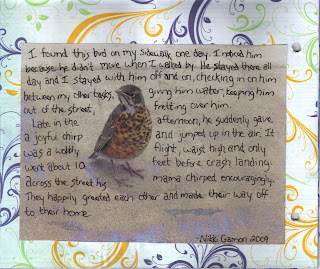 I found this bird on my sidewalk one day. I noticed him
because he didn't move when I walked by. He stayed there all
day and I stayed with him off and on, checking in on him
between my other tasks, giving him water, keeping him
out of the street, fretting over him.
Late in the afternoon, he suddenly gave
a joyful chirp and jumped up in the air. It
was a wobbly flight, waist high and only
went about 10 feet before crash landing.
across the street his mama chirped encouragingly.
They happily greeted each other and made their way off
to their home.
-Nikki Gamon 2009